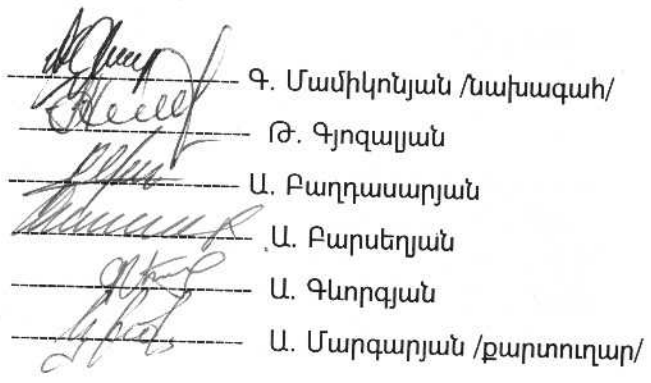 Գ. Մամիկոնյան /նախագահ/
Թ. Գյոզալյան
Ա. Բաղդասարյան
Ա. Բարսեղյան
Ա. Գևորգյան
Ա. Մարգարյան /քարտուղար/